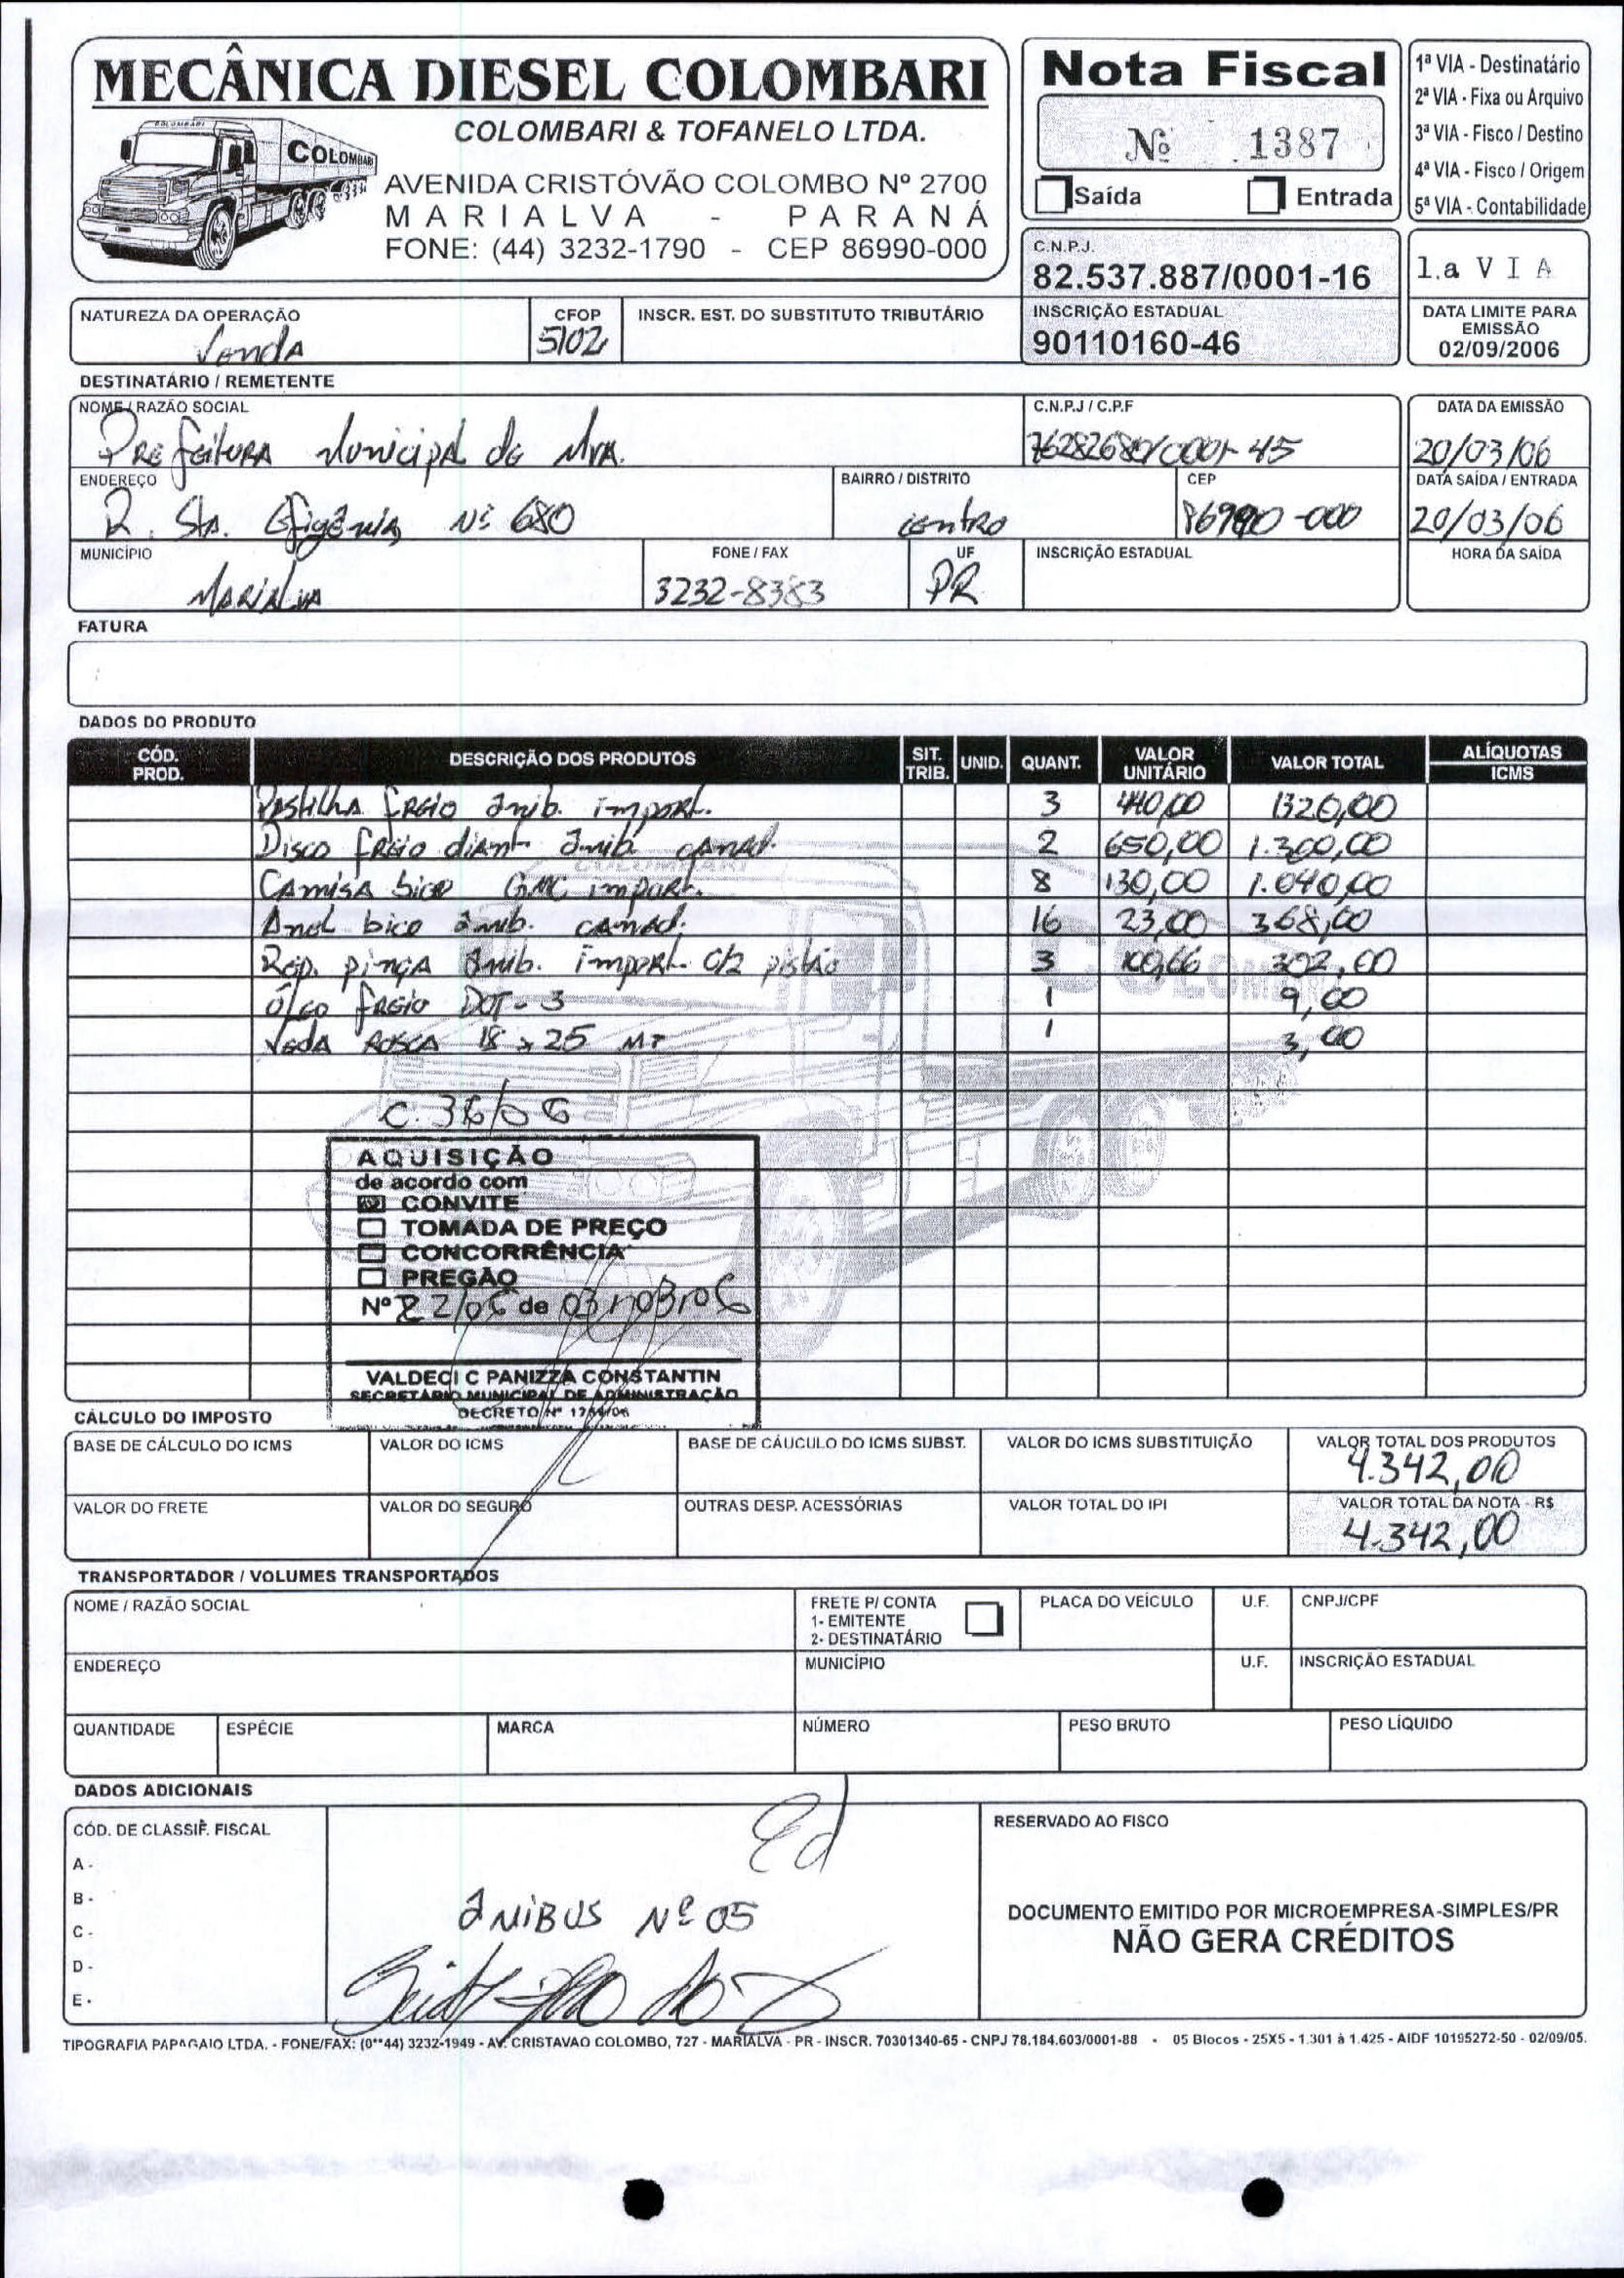 MECÂNICA DIESEL COLOMBARI
COLOMBARI & TOFANELO LTDA.
COLOMBARI
COLOMBARI
AVENIDA CRISTÓVÃO COLOMBO Nº 2700
MARIALVA - PARANÁ
FONE: (44) 3232-1790 - CEP 86990-000
Nota Fiscal
Nº 1387
Saída Entrada
1ª VIA - Destinatário
2ª VIA - Fixa ou Arquivo
3ª VIA - Fisco / Destino
4ª VIA - Fisco / Origem
5ª VIA - Contabilidade
C.N.P.J.
82.537.887/0001-16
1.a VIA
NATUREZA DA OPERAÇÃO CFOP INSCR. EST. DO SUBSTITUTO TRIBUTÁRIO
Venda 5102
INSCRIÇÃO ESTADUAL
90110160-46
DATA LIMITE PARA
EMISSÃO
02/09/2006
DESTINATÁRIO / REMETENTE
NOME / RAZÃO SOCIAL C.N.P.J / C.P.F DATA DA EMISSÃO
Prefeitura Municipal de Mva. 76282680/0001-45 20/03/06
ENDEREÇO BAIRRO / DISTRITO CEP DATA SAÍDA / ENTRADA
R. Sta. Efigênia, Nº 680 centro 86990-000 20/03/06
MUNICÍPIO FONE / FAX UF INSCRIÇÃO ESTADUAL HORA DA SAÍDA
Marialva 3232-8383 PR
FATURA
DADOS DO PRODUTO
CÓD. PROD. DESCRIÇÃO DOS PRODUTOS SIT. TRIB. UNID. QUANT. VALOR UNITÁRIO VALOR TOTAL ALÍQUOTAS ICMS
Pastilha freio ônib. import. 3 440,00 1320,00
Disco freio diant ônib. canad. 2 650,00 1.300,00
Camisa bico GMC import. 8 130,00 1.040,00
Anel bico ônib. canad. 16 23,00 368,00
Rep. pinça ônib. import. c/2 pistão 3 100,66 302,00
Óleo freio DOT-3 1 9,00
Veda rosca 18 x 25 MT 1 3,00
COLOMBARI
COLOMBARI
C. 36/06
AQUISIÇÃO
de acordo com
CONVITE
TOMADA DE PREÇO
CONCORRÊNCIA
PREGÃO
Nº 22/06 de 03/03/06
VALDECI C PANIZZA CONSTANTIN
SECRETÁRIO MUNICIPAL DE ADMINISTRAÇÃO
DECRETO Nº
CÁLCULO DO IMPOSTO
BASE DE CÁLCULO DO ICMS VALOR DO ICMS BASE DE CÁUCULO DO ICMS SUBST. VALOR DO ICMS SUBSTITUIÇÃO VALOR TOTAL DOS PRODUTOS
4.342,00
VALOR DO FRETE VALOR DO SEGURO OUTRAS DESP. ACESSÓRIAS VALOR TOTAL DO IPI VALOR TOTAL DA NOTA - R$
4.342,00
TRANSPORTADOR / VOLUMES TRANSPORTADOS
NOME / RAZÃO SOCIAL FRETE P/ CONTA PLACA DO VEÍCULO U.F. CNPJ/CPF
1- EMITENTE
2- DESTINATÁRIO
ENDEREÇO MUNICÍPIO U.F. INSCRIÇÃO ESTADUAL
QUANTIDADE ESPÉCIE MARCA NÚMERO PESO BRUTO PESO LÍQUIDO
DADOS ADICIONAIS
CÓD. DE CLASSIF. FISCAL RESERVADO AO FISCO
A -
B -
C -
D -
E -
Ed
Ônibus Nº 05
DOCUMENTO EMITIDO POR MICROEMPRESA-SIMPLES/PR
NÃO GERA CRÉDITOS
TIPOGRAFIA PAPAGAIO LTDA. - FONE/FAX: (0**44) 3232-1949 - AV. CRISTAVAO COLOMBO, 727 - MARIALVA - PR - INSCR. 70301340-65 - CNPJ 78.184.603/0001-88 - 05 Blocos - 25X5 - 1.301 à 1.425 - AIDF 10195272-50 - 02/09/05.